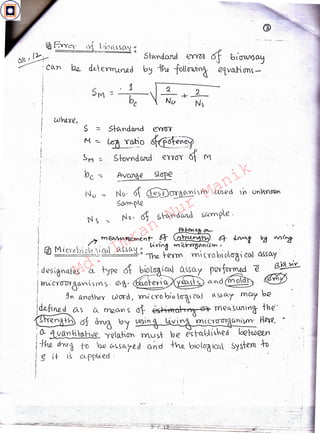 ③
Error of bioassay:
Standard error of bioassay
can be determined by the following equations—
S_M = 1/b_c √(2/N_U + 2/N_S)
where,
S = Standard error
M = Log ratio of potency
S_M = Standard error of M
b_c = Average slope
N_U = No. of test organism used in unknown
sample
N_S = No. of standard sample.
measurement of strength of drug by using
living microorganism.
Microbiological assay: The term microbiological assay
designates a type of biological assay performed c̄
microorganisms. e.g- bacteria, yeasts and molds
In another word, microbiological assay may be
defined as a means of estimating measuring the
strength of drug by using living microorganism. Here,
a quantitative relation must be established between
the drug to be assayed and the biological system to
c̄ it is applied
Md. Imran Nur Manik